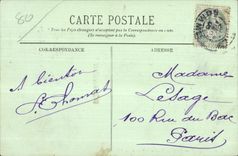 80
CARTE POSTALE
Tous les Pays étrangers n'acceptent pas la Correspondance au recto
(Se renseigner à la Poste)
CORRESPONDANCE
ADRESSE
A bientôt
Thomas
Madame
Lesage
100 Rue du Bac
Paris